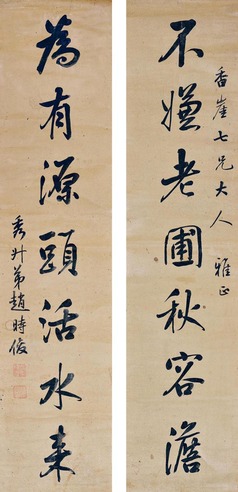 香崖七兄大人 雅正
不嫌老圃秋容澹
為有源頭活水來
秀升弟趙時俊